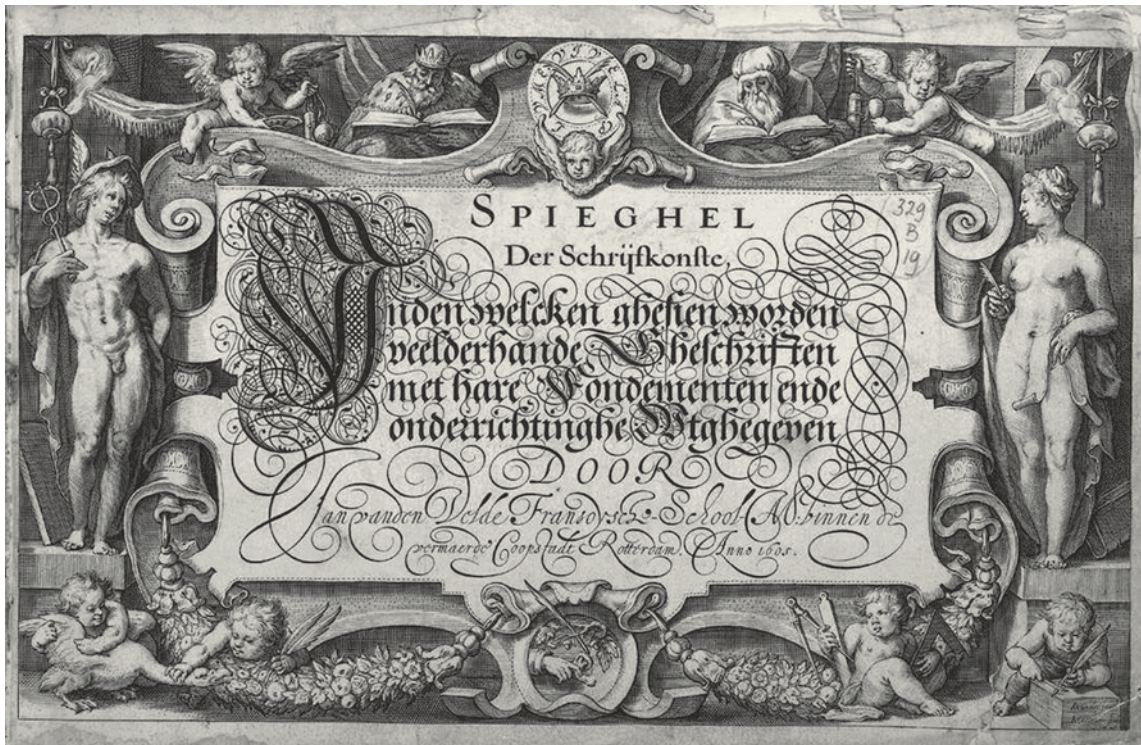 SPIEGHEL
Der Schrijfkonste,
Inden welcken ghesien worden
veelderhande Gheschriften
met hare Fondementen ende
onderrichtinghe Wtghegeven
DOOR
Jan vanden Velde Fransoysche-School-M: binnen de
vermaerde Coopstadt Rotterdam. Anno 1605.
329
B
19